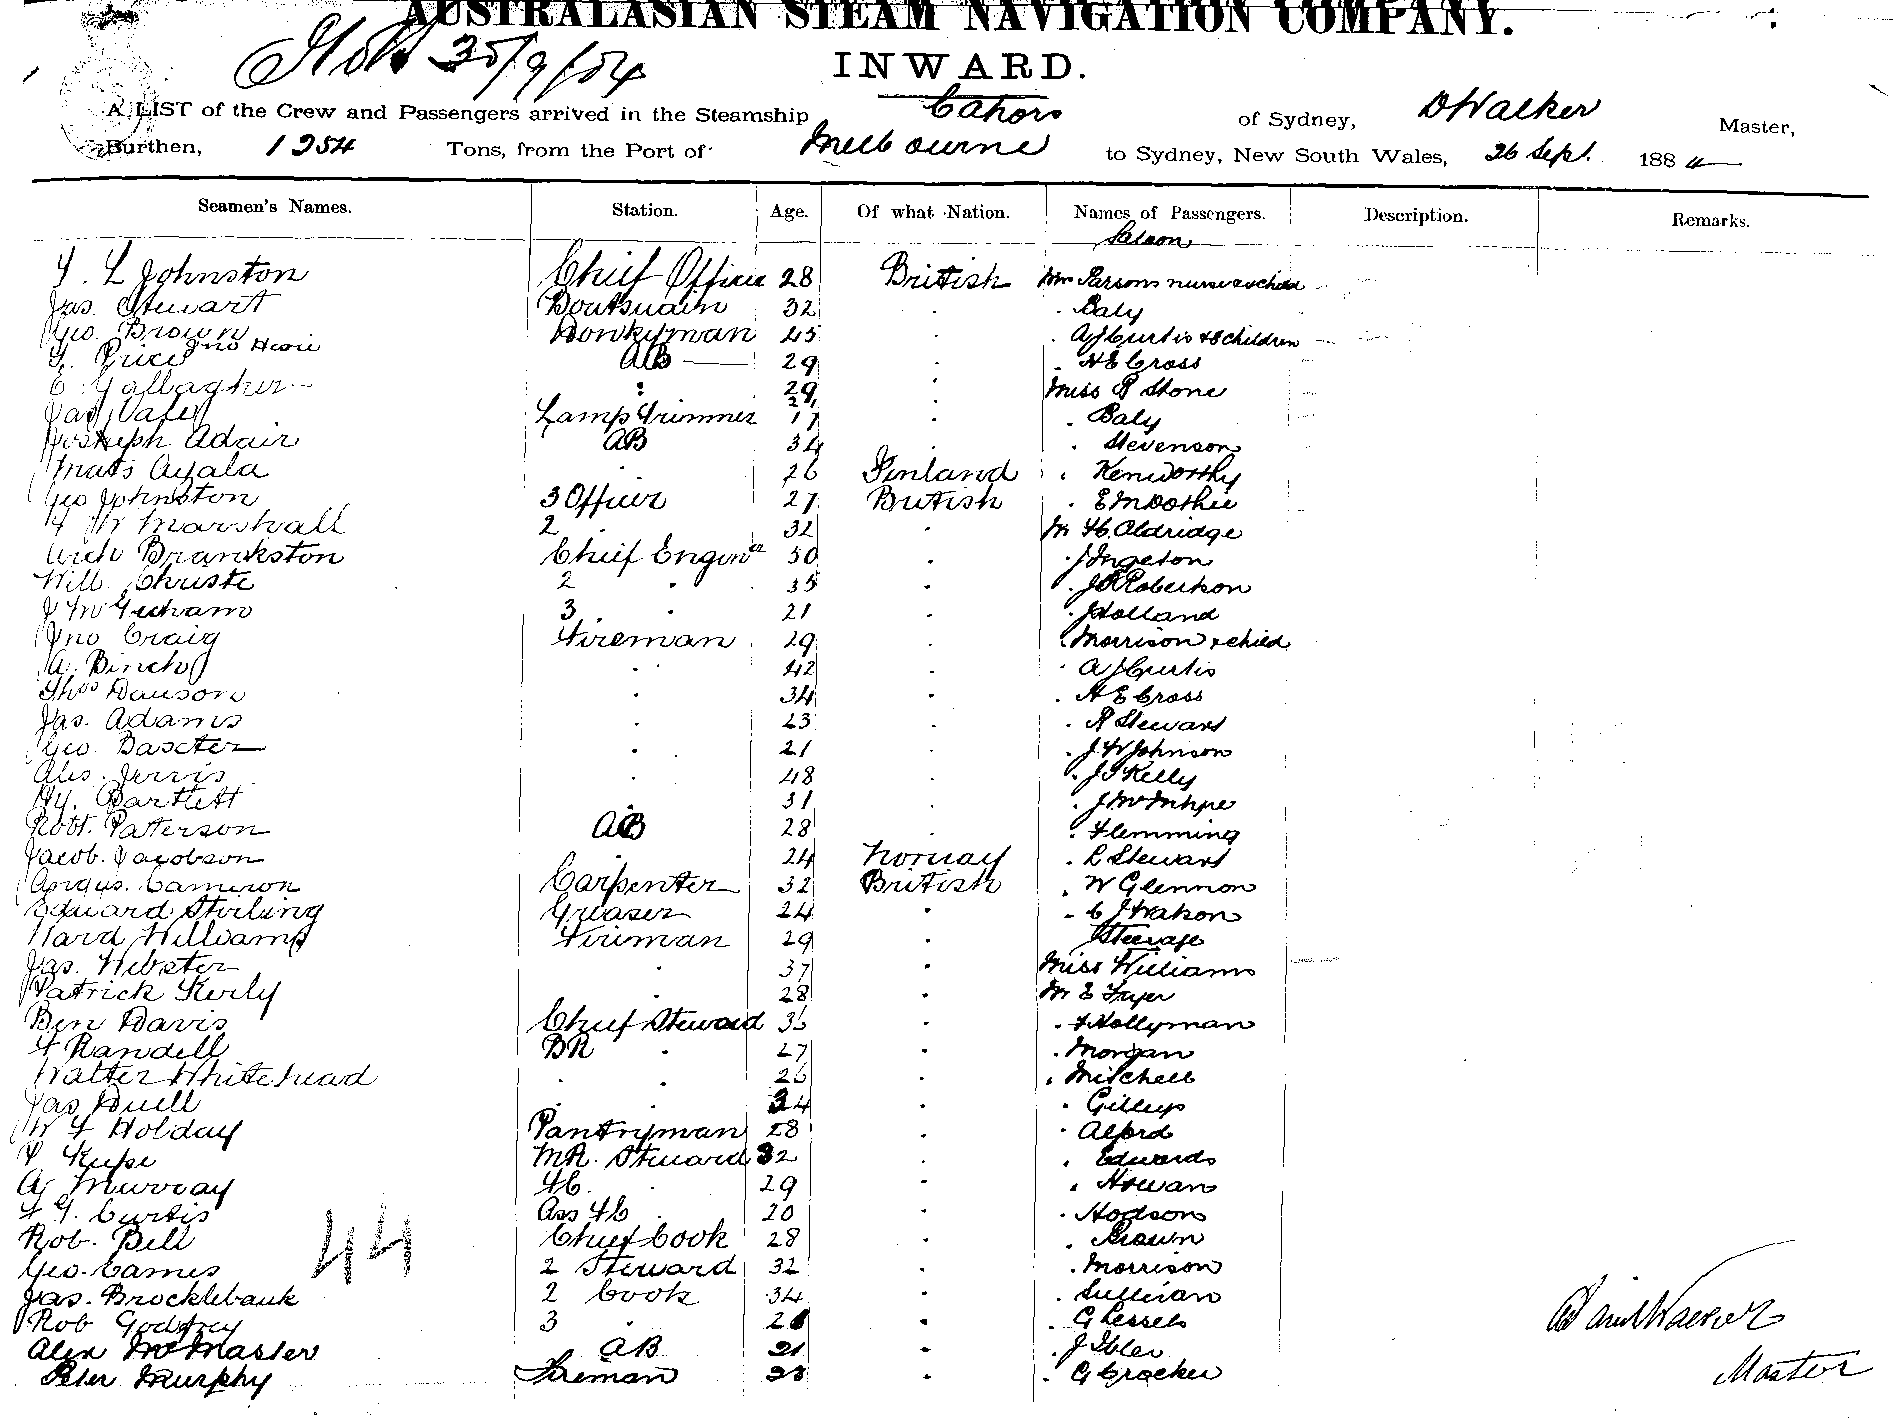 AUSTRALASIAN STEAM NAVIGATION COMPANY.
INWARD.
A LIST of the Crew and Passengers arrived in the Steamship Cahors of Sydney, D Walker Master,
Burthen, 1254 Tons, from the Port of Melbourne to Sydney, New South Wales, 26 Sept. 1884
Seamen's Names. Station. Age. Of what Nation. Names of Passengers. Description. Remarks.
Saloon
Y. L Johnston Chief Officer 28 British Mrs Parsons nurse & child
Jas. Stewart Boatswain 32 . . Baly
Geo. Brown Donkyman 45 . . A J Curtis & 8 children
Price AB 29 . . H E Cross
C Gallagher " 29 . Miss R Stone
Jas Lamp Trimmer 17 . . Baly
Joseph Adair AB 34 . . Stevenson
Mats Ayala . 26 Finland . Kenworthy
Geo Johnston 3 Officer 27 British . E
F W Marshall 2 . 32 . Mr H. Aldridge
Arch Brankston Chief Engineer 50 . . J Ingleton
Will. Christie 2 . 35 . . J R Robertson
3 . 21 . . J Holland
Jno Craig Fireman 29 . . Morrison & child
A. Binch . 42 . . A J Curtis
Thos Dawson . 34 . . H E Cross
Jas. Adams . 23 . . R Stewart
Geo. Baxter . 21 . . J W Johnson
Alex. . 48 . . J Kelly
Hy. Bartlett . 31 . . J
Robt. Paterson AB 28 . . Flemming
Jacob. Jacobson . 24 Norway . R Stewart
Angus. Cameron Carpenter 32 British . W Glennon
Edward Stirling Greaser 24 . . C J
Ward Williams Fireman 29 . Steerage
Jas. Webster . 37 . Miss Williams
Patrick . 28 . Mr E Fryer
Ben Davis Chief Steward 36 . . F Hollyman
F Randell BR . 27 . . Morgan
Walter Whitehead . . 26 . . Mitchell
Jas Duell . . 24 . . Gillup
W F Holday Pantryman 28 . . Alford
MR. Steward 32 . . Edwards
A Murray FC. . 29 . . Howan
F G. Curtis Ass FC . 20 . . Hodson
Rob. Bell Chief Cook 28 . . Brown
Geo. Cames 2 Steward 32 . . Morrison
Jas. Brocklebank 2 Cook 34 . . Sullivan
Rob Godfrey 3 . . . G Lessels
Alex McMaster AB 21 . . J
Peter Murphy Fireman 23 . . G Crocker
44
Walker
Master